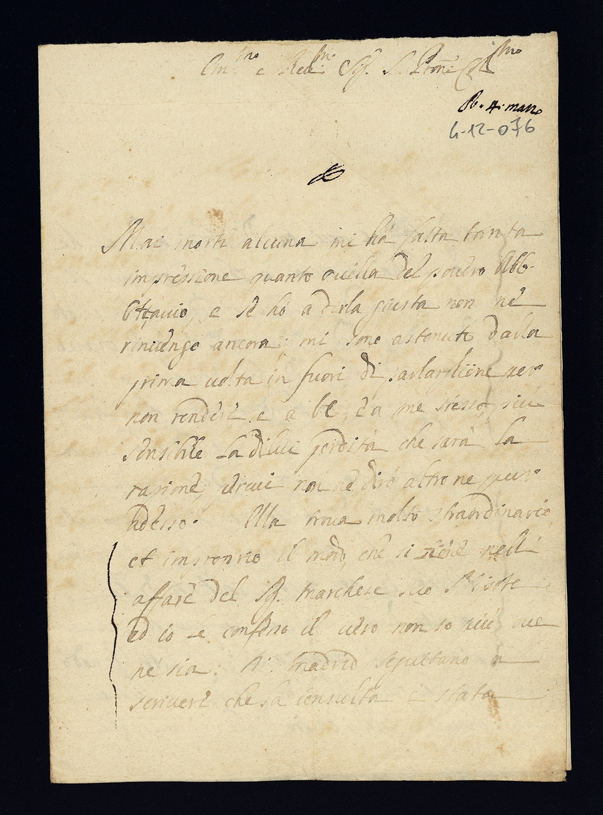 R. 4. marzo
4-12-076
Mai morte alcuna mi hà fatta tanta
impressione quanto quella del povero Abb.
Ottavio, e se hò a dirla giusta non ne
rinvengo ancora; mi sono astenuto dalla
prima volta in fuori di parlarlene per
non rendere, e a lei, e a me stesso, più
sensibile la di lui perdita che sarà la
cagione, per cui non ne dirò altro ne pur
adesso. Ella trova molto straordinario,
et improprio il modo che si tiene nell'
affare del Sig. Marchese suo Nipote
ed io le confesso il vero non so più ove
ne sia. Di Madrid seguitano a
scrivere che la consulta è stata